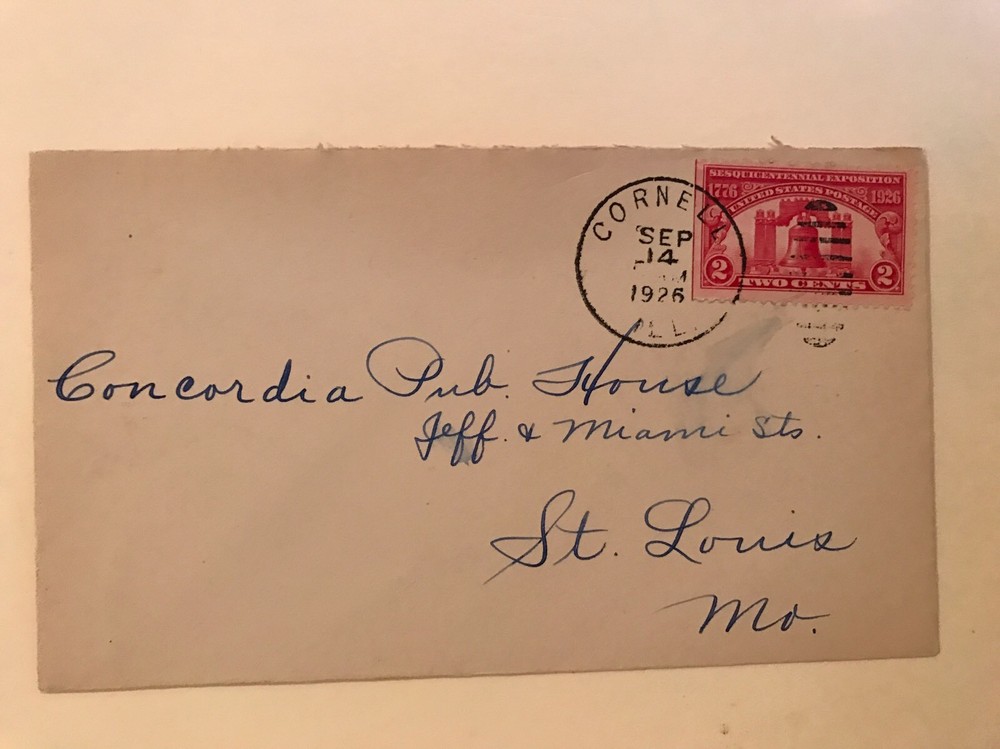 SESQUICENTENNIAL EXPOSITION
1776 UNITED STATES POSTAGE 1926
2 TWO CENTS 2
CORNELL
SEP
14
M
1926
ILL.
Concordia Pub. House
Jeff. & Miami Sts.
St. Louis
Mo.